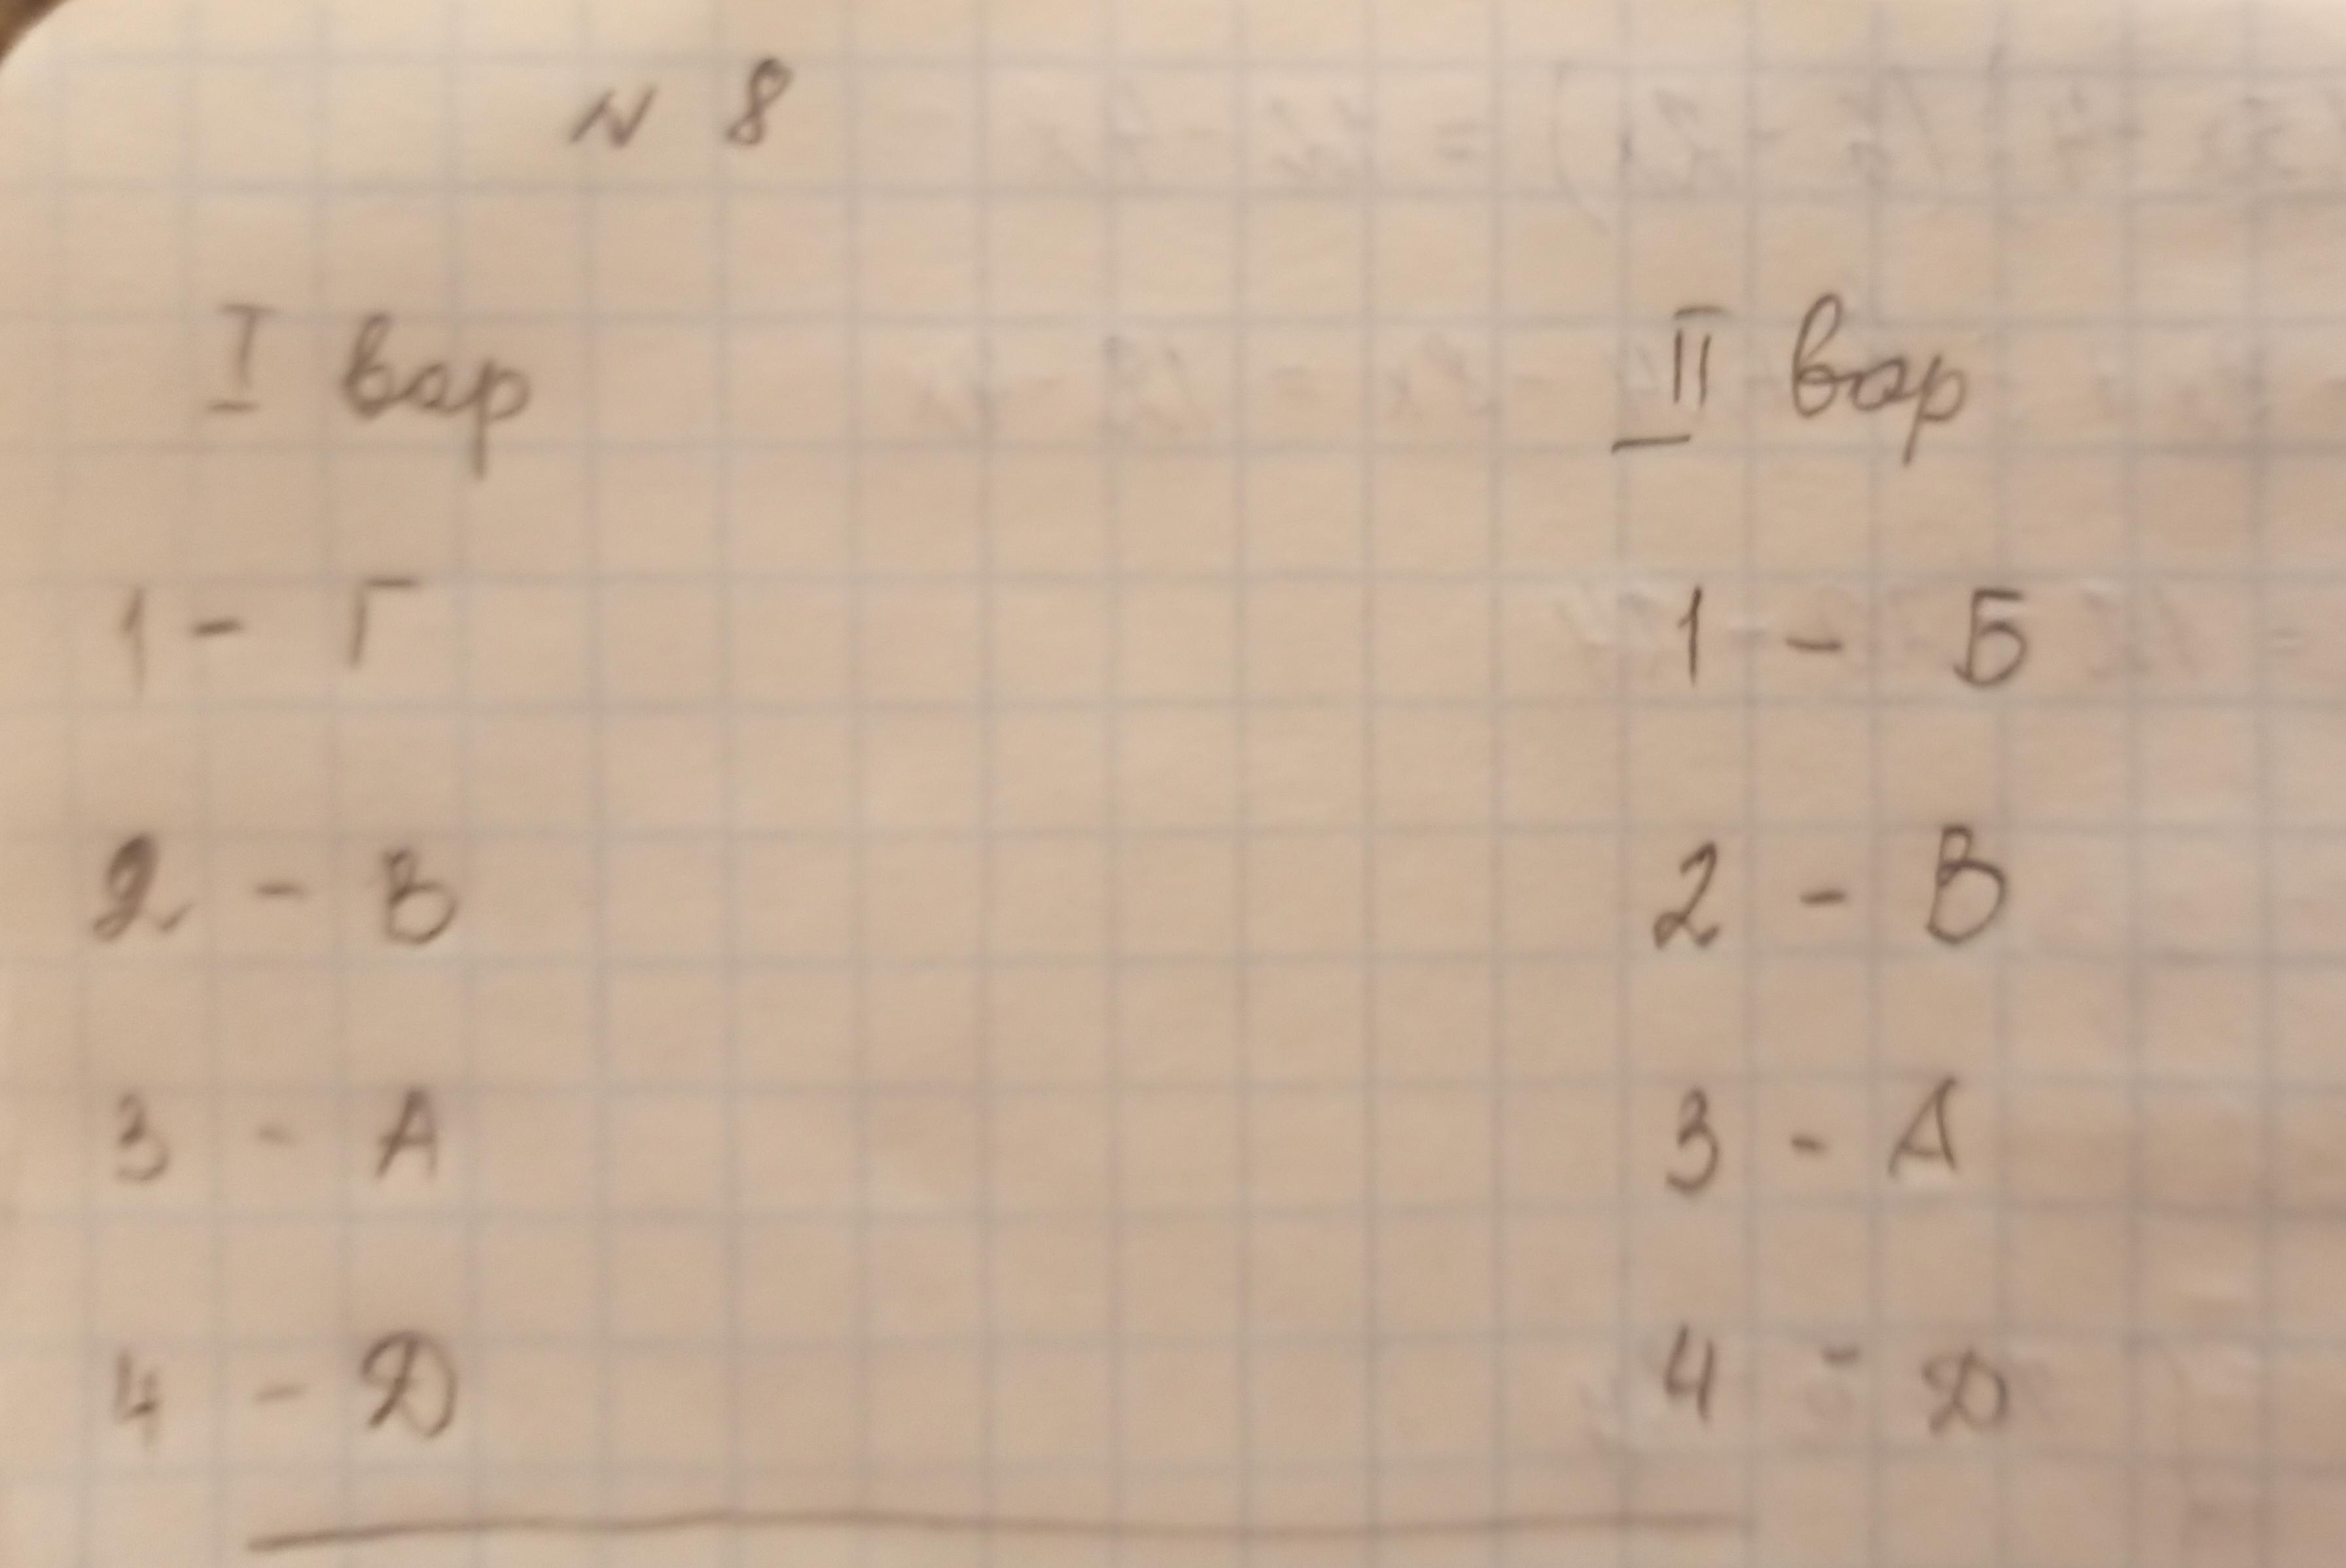 N 8
I вар II вар
1 - Г 1 - Б
2 - В 2 - В
3 - А 3 - А
4 - Д 4 - Д